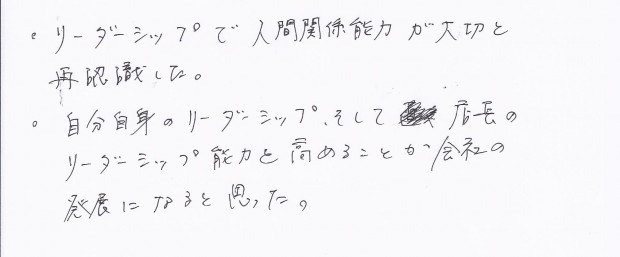 ・リーダーシップで人間関係能力が大切と
再認識した。
・自分自身のリーダーシップ、そして店長の
リーダーシップ能力を高めることが会社の
発展になると思った。